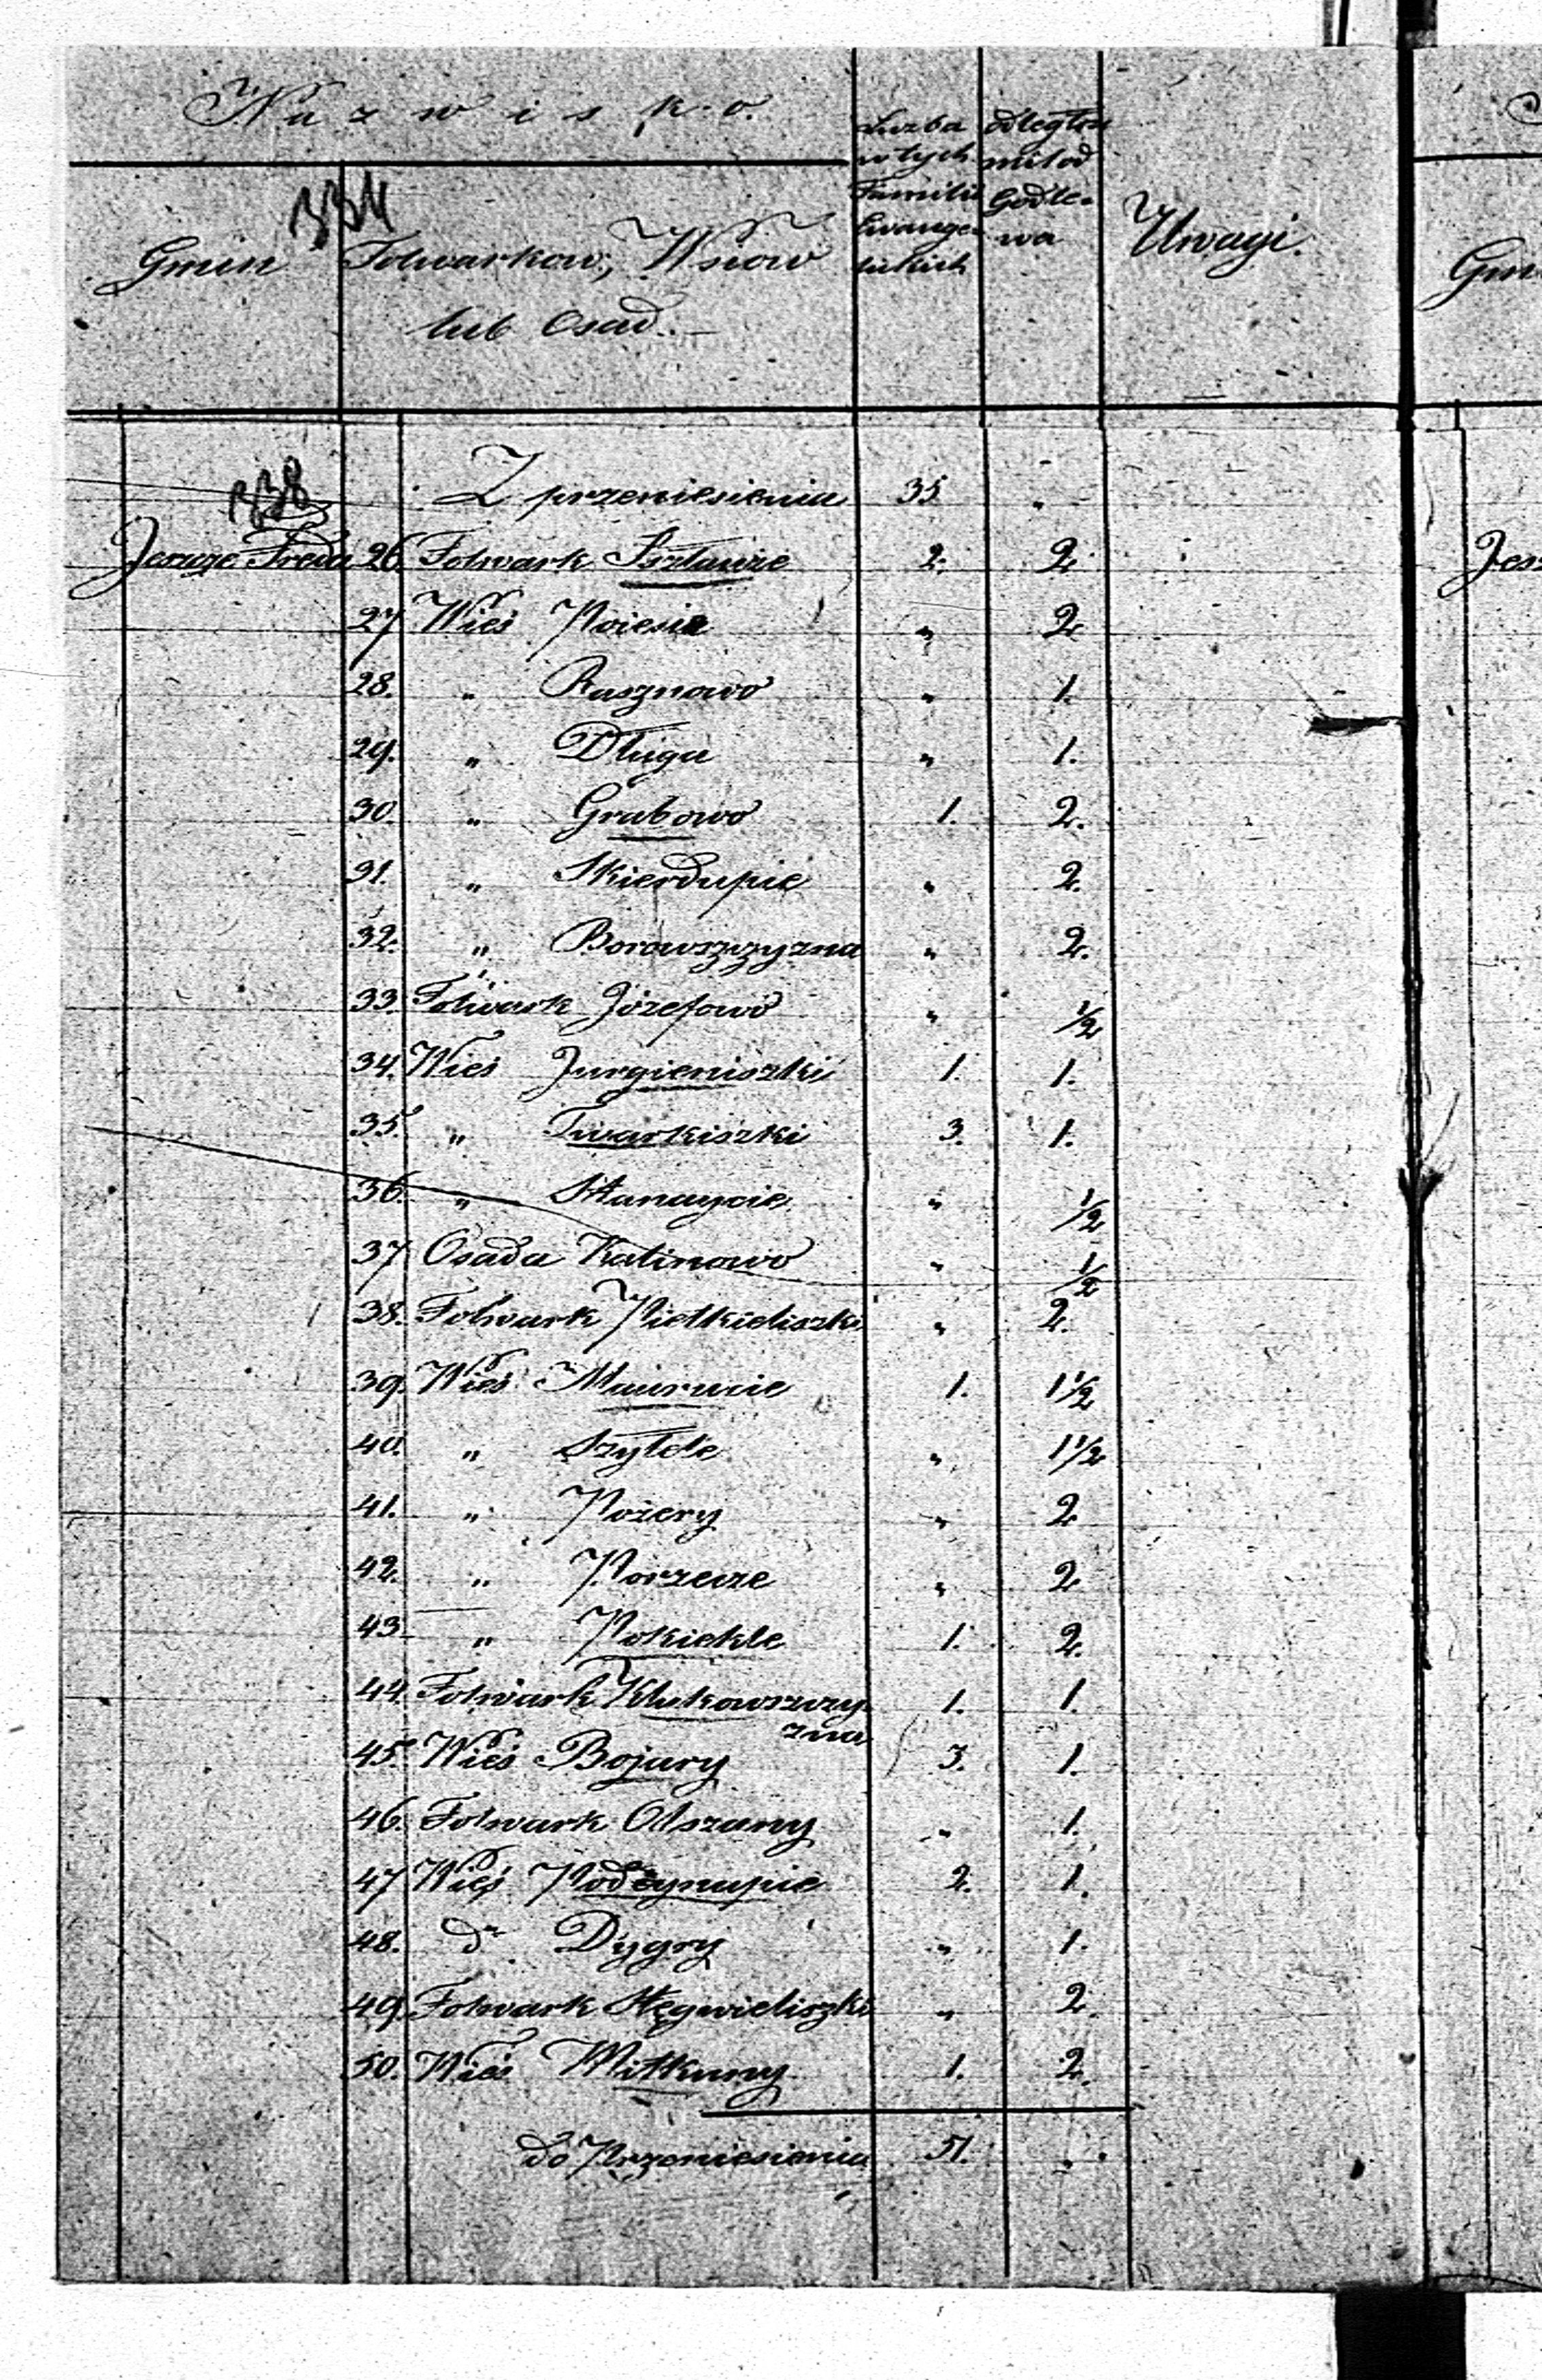 Nazwisko
334
Gmin
Folwarkow, Wsiow
lub Osad.
Liczba
w tych
Familii
Ewange-
lickich
Odległosc
mil od
Godle-
wa
Uwagi.
338
Z przeniesienia 35 "
Jesuze Freda 26. Folwark Szlauze 2. 2.
27 Wieś Poiesia " 2
28. " Rasznowo " 1.
29. " Długa " 1.
30. " Grabowo 1. 2.
31. " Skierdupie " 2.
32. " Borowszczyzna " 2.
33. Folwark Józefowo " 1/2
34. Wieś Jurgieniszki 1. 1.
35. " Twarkiszki 3. 1.
36. " Stanaycie " 1/2
37 Osada Kalinowo " 1/2
38. Folwark Pietkieliszki " 2.
39. Wieś Maurucie 1. 1 1/2
40. " Szylele " 1 1/2
41. " Pożery " 2
42. " Porzecze " 2
43. " Pokiekle 1. 2.
44. Folwark Klukowszczy-
zna 1. 1.
45. Wieś Bojary 3. 1.
46. Folwark Olszany " 1.
47 Wieś Podzynupie 2. 1.
48. do Dygry " 1.
49. Folwark Stęgwieliszki " 2.
50. Wieś Witkuny 1. 2.
do Przeniesienia 51. "
Gmi
Jes